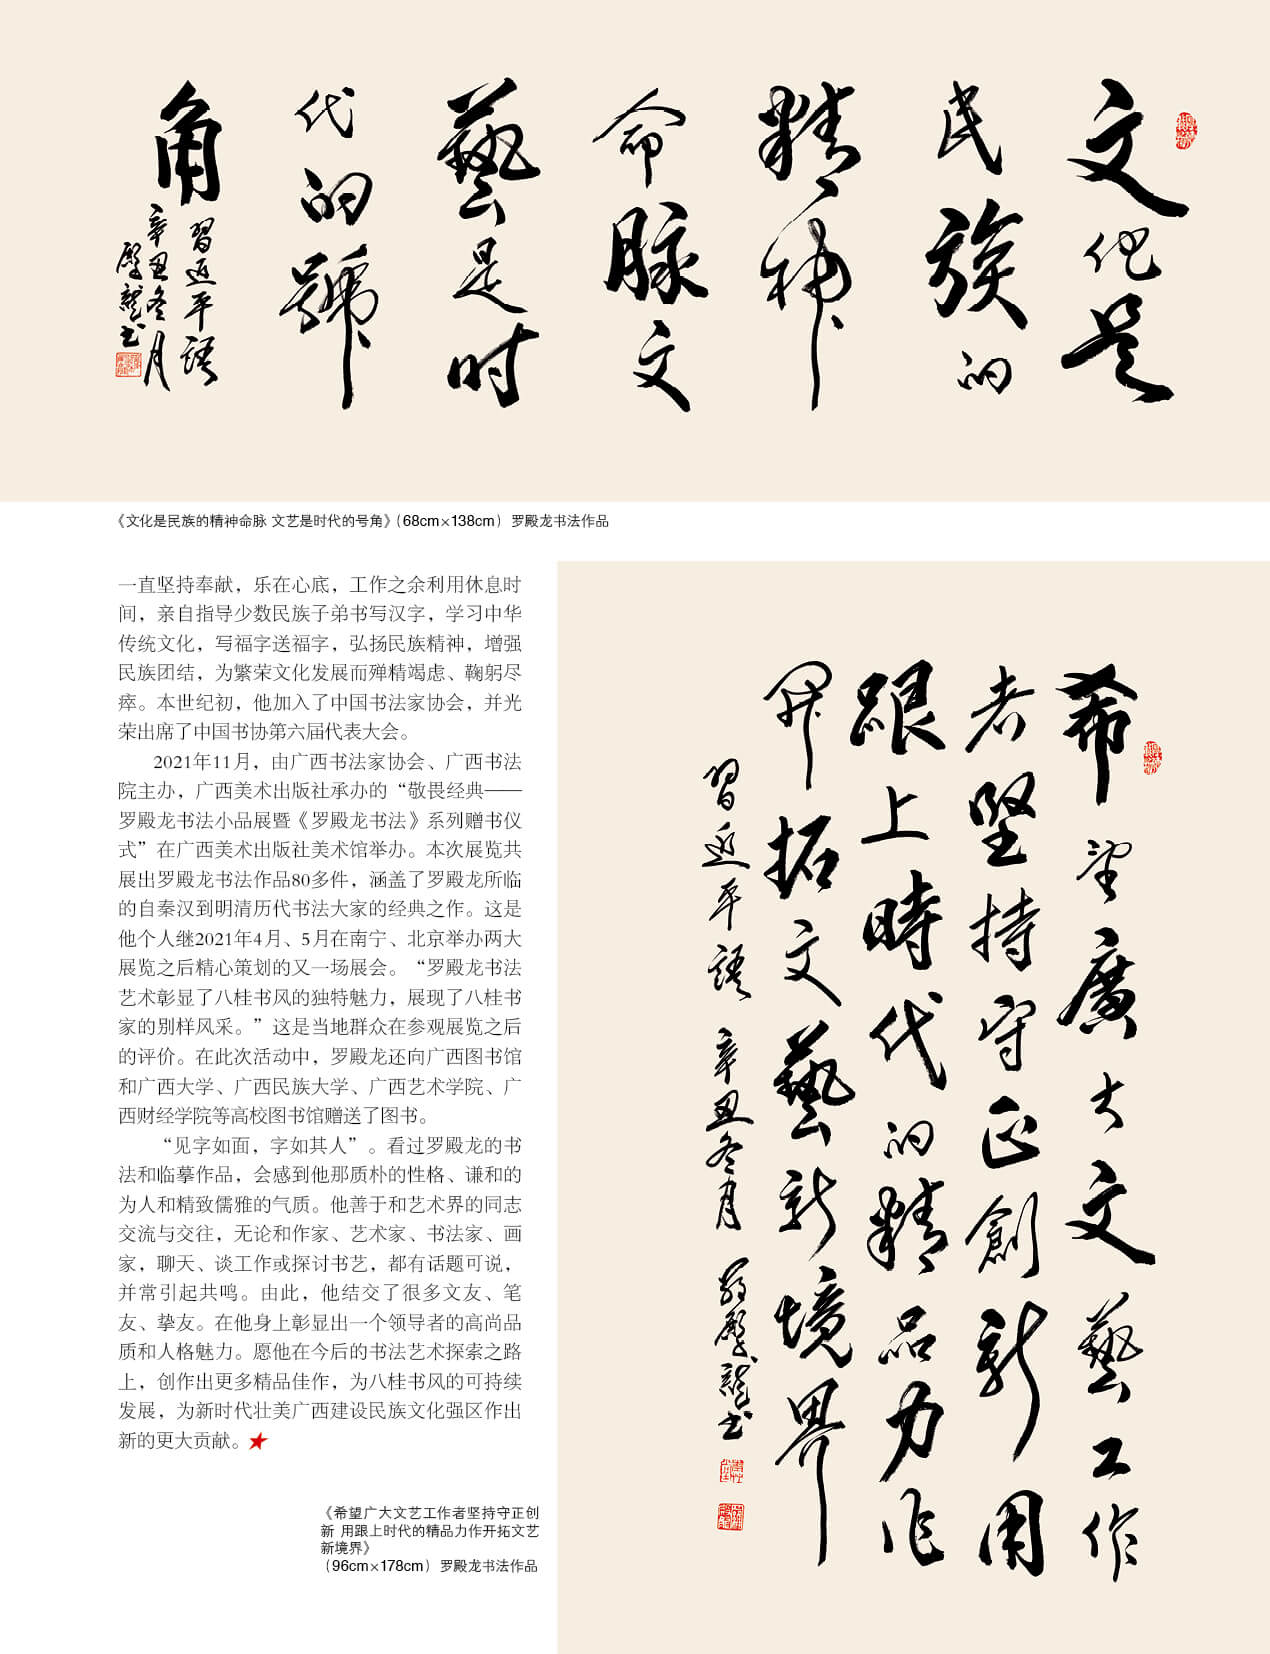 文化是
民族的
精神
命脉文
藝是时
代的號
角
習近平語
辛丑冬月
殿龍书
《文化是民族的精神命脉 文艺是时代的号角》（68cm×138cm） 罗殿龙书法作品
一直坚持奉献，乐在心底，工作之余利用休息时
间，亲自指导少数民族子弟书写汉字，学习中华
传统文化，写福字送福字，弘扬民族精神，增强
民族团结，为繁荣文化发展而殚精竭虑、鞠躬尽
瘁。本世纪初，他加入了中国书法家协会，并光
荣出席了中国书协第六届代表大会。
2021年11月，由广西书法家协会、广西书法
院主办，广西美术出版社承办的“敬畏经典——
罗殿龙书法小品展暨《罗殿龙书法》系列赠书仪
式”在广西美术出版社美术馆举办。本次展览共
展出罗殿龙书法作品80多件，涵盖了罗殿龙所临
的自秦汉到明清历代书法大家的经典之作。这是
他个人继2021年4月、5月在南宁、北京举办两大
展览之后精心策划的又一场展会。“罗殿龙书法
艺术彰显了八桂书风的独特魅力，展现了八桂书
家的别样风采。”这是当地群众在参观展览之后
的评价。在此次活动中，罗殿龙还向广西图书馆
和广西大学、广西民族大学、广西艺术学院、广
西财经学院等高校图书馆赠送了图书。
“见字如面，字如其人”。看过罗殿龙的书
法和临摹作品，会感到他那质朴的性格、谦和的
为人和精致儒雅的气质。他善于和艺术界的同志
交流与交往，无论和作家、艺术家、书法家、画
家，聊天、谈工作或探讨书艺，都有话题可说，
并常引起共鸣。由此，他结交了很多文友、笔
友、挚友。在他身上彰显出一个领导者的高尚品
质和人格魅力。愿他在今后的书法艺术探索之路
上，创作出更多精品佳作，为八桂书风的可持续
发展，为新时代壮美广西建设民族文化强区作出
新的更大贡献。
希望廣大文藝工作
者堅持守正創新用
跟上時代的精品力作
开拓文藝新境界
習近平語 辛丑冬月 羅殿龍书
《希望广大文艺工作者坚持守正创
新 用跟上时代的精品力作开拓文艺
新境界》
（96cm×178cm） 罗殿龙书法作品